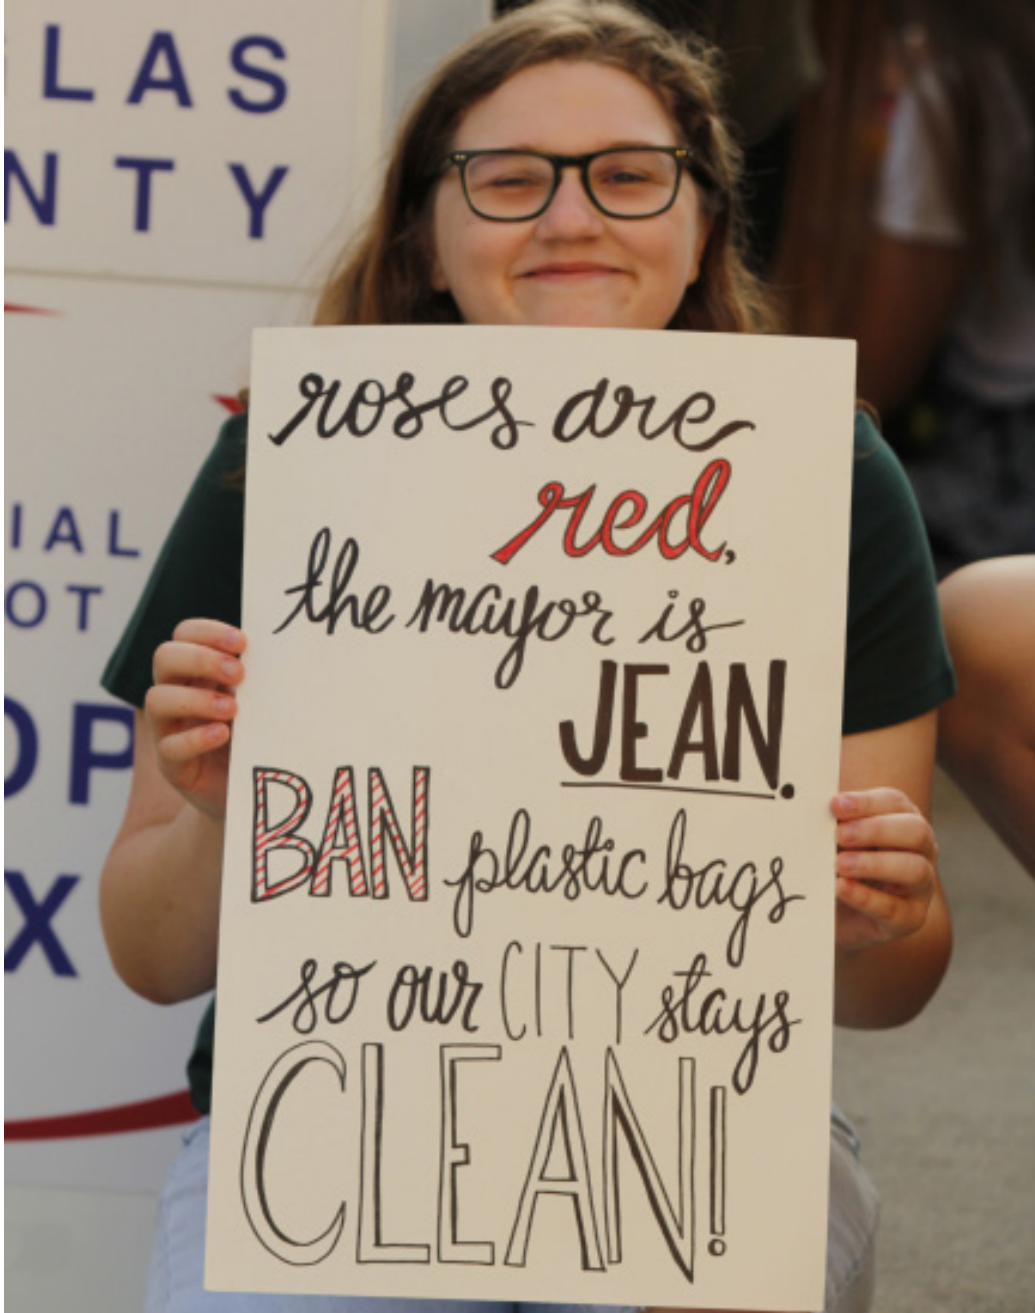 LAS
NTY
IAL
OT
OP
X
roses are
red,
the mayor is
JEAN.
BAN plastic bags
so our CITY stays
CLEAN!